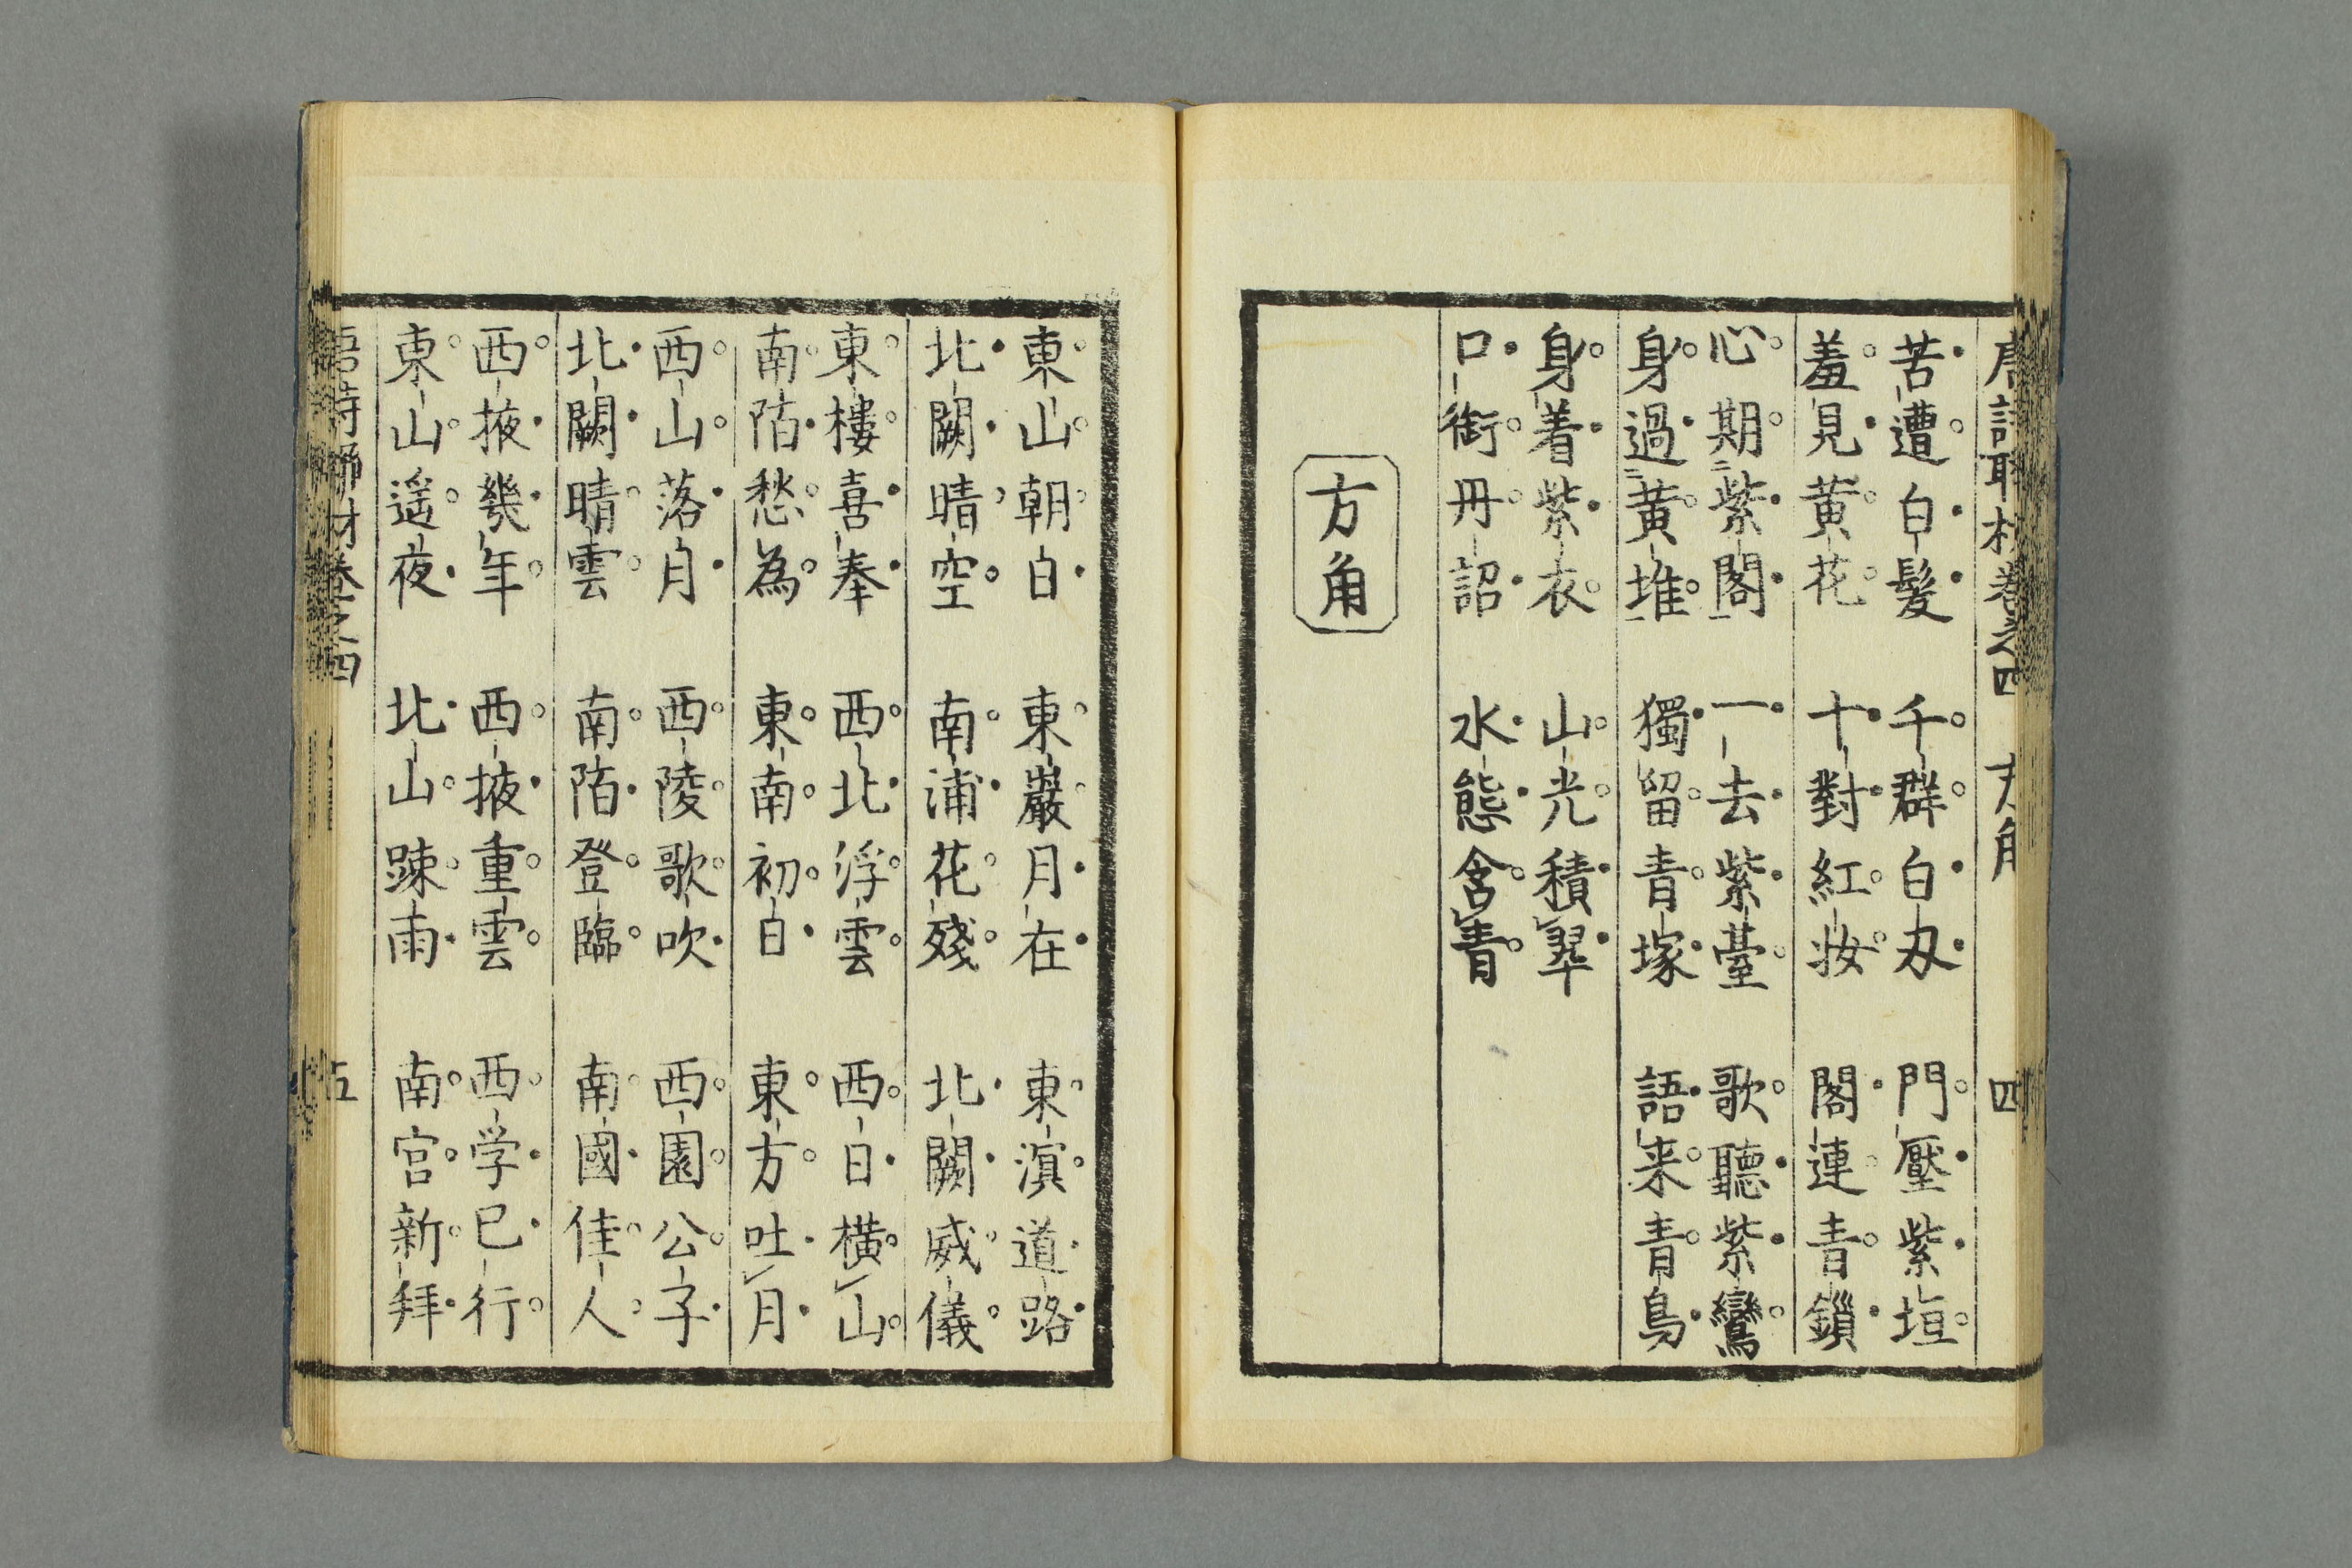 唐詩聯材卷之四　方角　四
苦遭白髮　千群白刃　門壓紫垣
羞見黃花　十對紅妝　閣連青鎖
心期紫閣　一去紫臺　歌聽紫鸞
身過黃堆　獨留青塚　語来青鳥
身着紫衣　山光積翠
口銜丹詔　水態含青
方角
東山朝白　東巖月在　東溟道路
北闕晴空　南浦花殘　北闕威儀
東樓喜奉　西北浮雲　西日橫山
南陌愁為　東南初白　東方吐月
西山落月　西陵歌吹　西園公子
北闕晴雲　南陌登臨　南國佳人
西掖幾年　西掖重雲　西学已行
東山遥夜　北山踈雨　南宮新拜
唐詩聯材卷之四　五